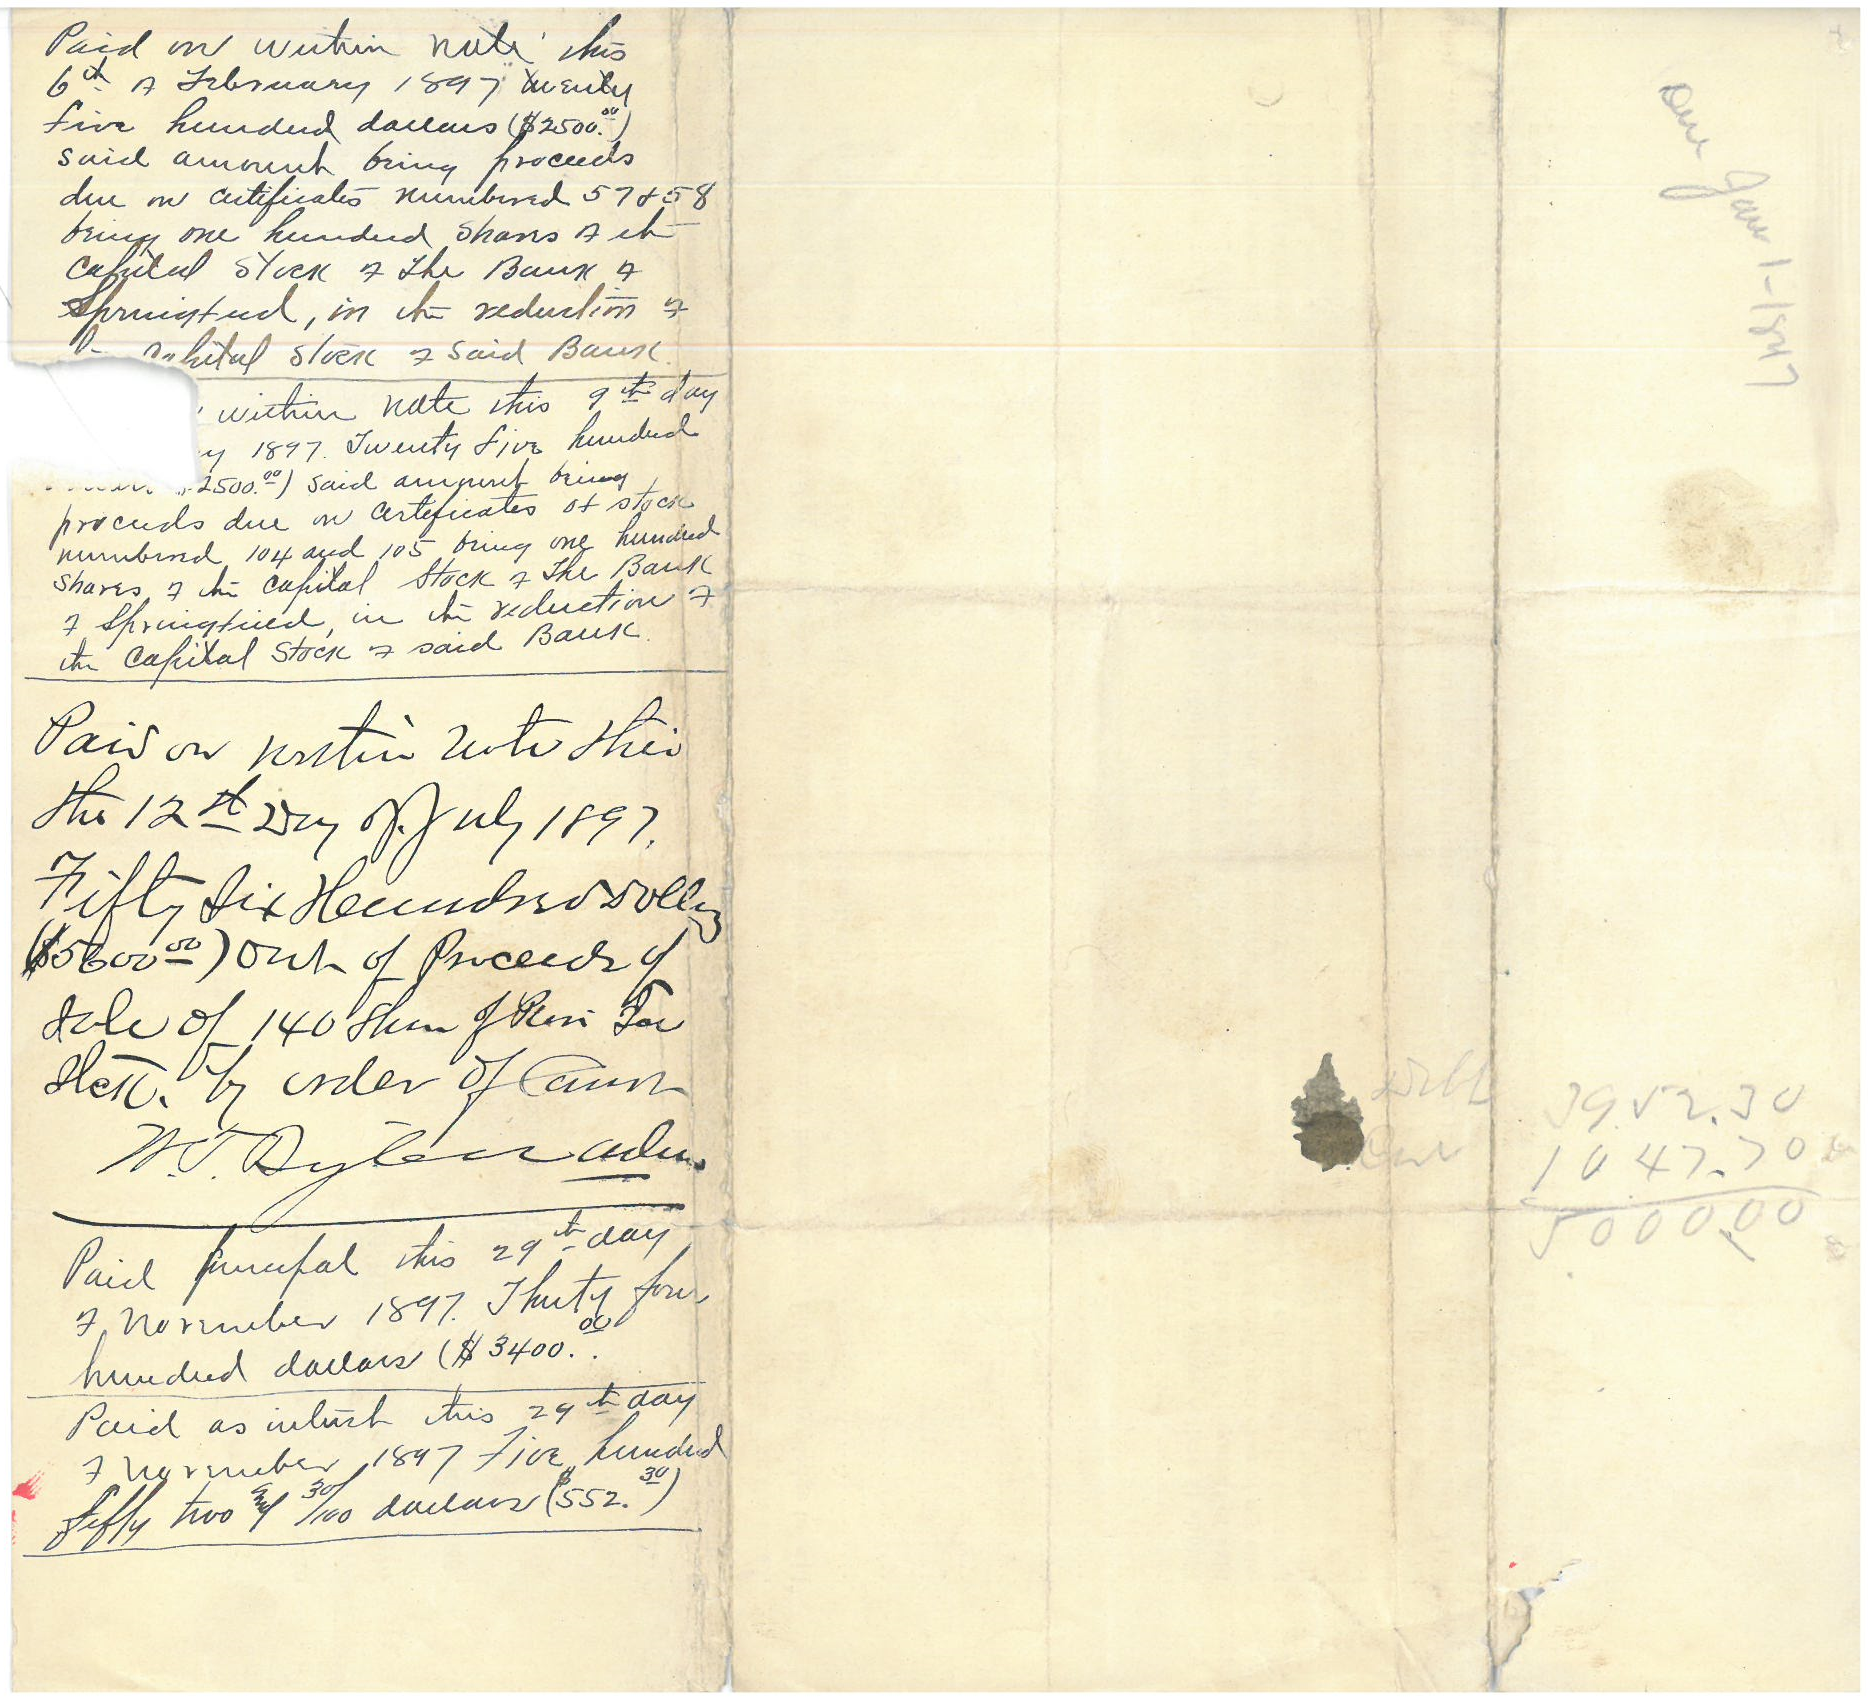 Paid on within note this
6th of February 1897 twenty
five hundred dollars ($2500.00)
said amount being proceeds
due on certificates numbered 57 & 58
being one hundred shares of the
capital stock of The Bank of
Springfield, in the reduction of
capital stock of said Bank
within note this 9th day
1897. Twenty five hundred
2500.00) said amount being
proceeds due on certificates of stock
numbered 104 and 105 being one hundred
shares of the capital stock of The Bank
of Springfield, in the reduction of
the capital stock of said Bank.
Paid on within note this
the 12th Day of July 1897.
Fifty Six Hundred Dollars
($5600.00) Out of Proceeds of
sale of 140 Shares of
Stock. by order of Court
W.T.
Paid principal this 29th day
of November 1897. Thirty four
hundred dollars ($3400.00
Paid as interest this 29th day
of November 1897 Five hundred
fifty two & 30/100 dollars ($552.30)
Due Jany 1-1897
3952.30
1047.70
5000.00